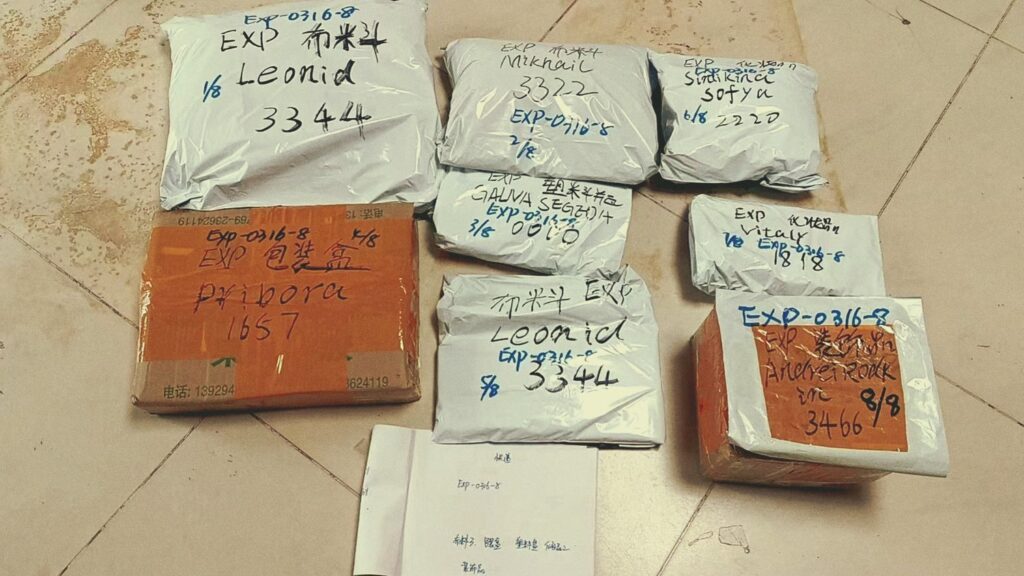 EXP-0316-8
EXP 布米斗
Leonid
1/8
3344
EXP 布米斗
Mikhail
3322
EXP-0316-8
2/8
EXP
EXP-0316-8
Sofya
6/8 2220
EXP
GALIVA
EXP-0316-8
3/8
EXP
Vitaly
EXP-0316-8
1818
789-23624119
电话: 13
EXP-0316-8 4/8
EXP 包装盒
pribora
1657
电话: 139294
3624119
布米斗 EXP
Leonid
EXP-0316-8
5/8 3344
EXP-0316-8
EXP 装饰品
Andrei
8/8
3466
快递
EXP-0316-8